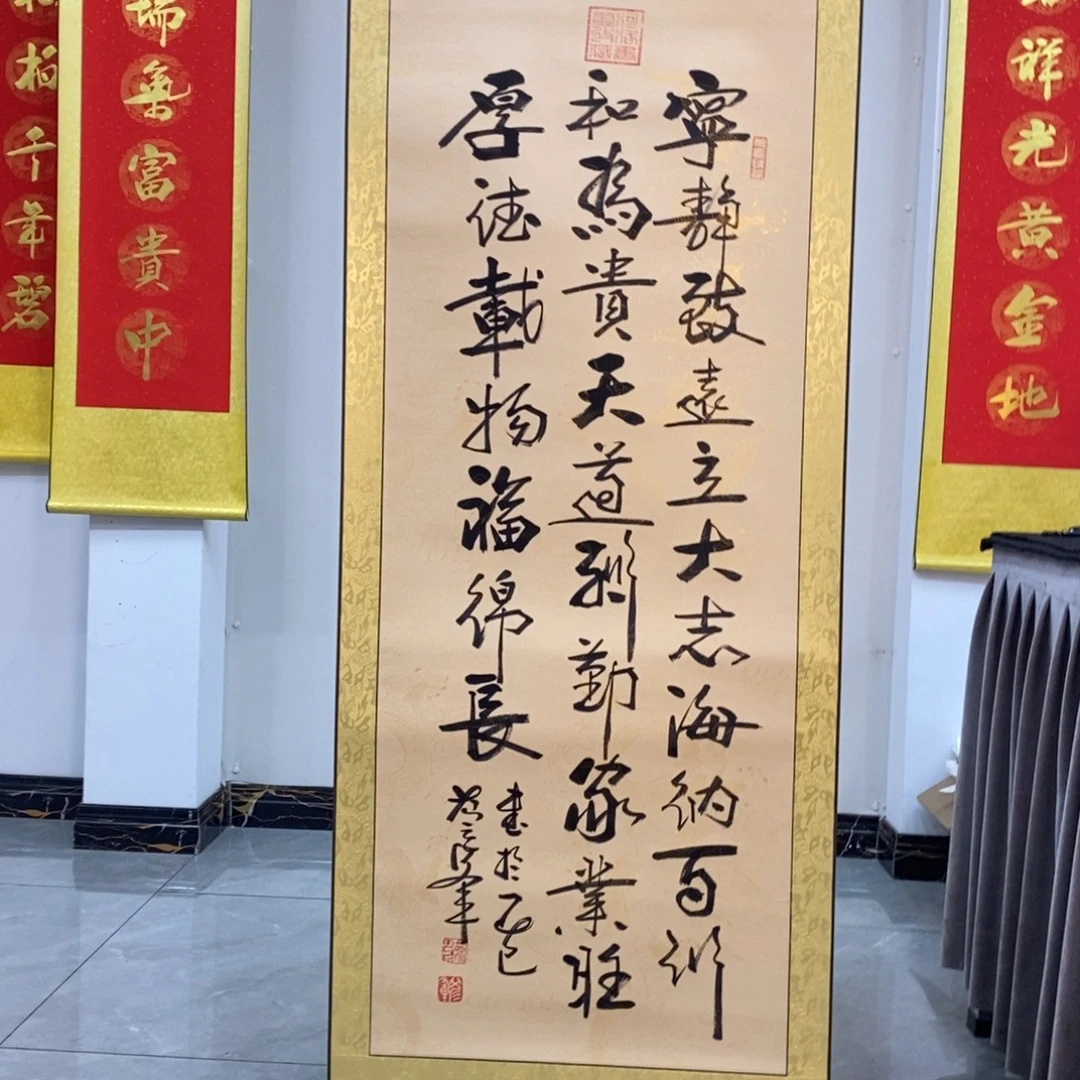 祥光黄金地
寧靜致遠立大志海納百川
和為貴天道酬勤家業旺
厚德載物福綿長
書於乙巳
瑞氣富貴中
柏千年碧